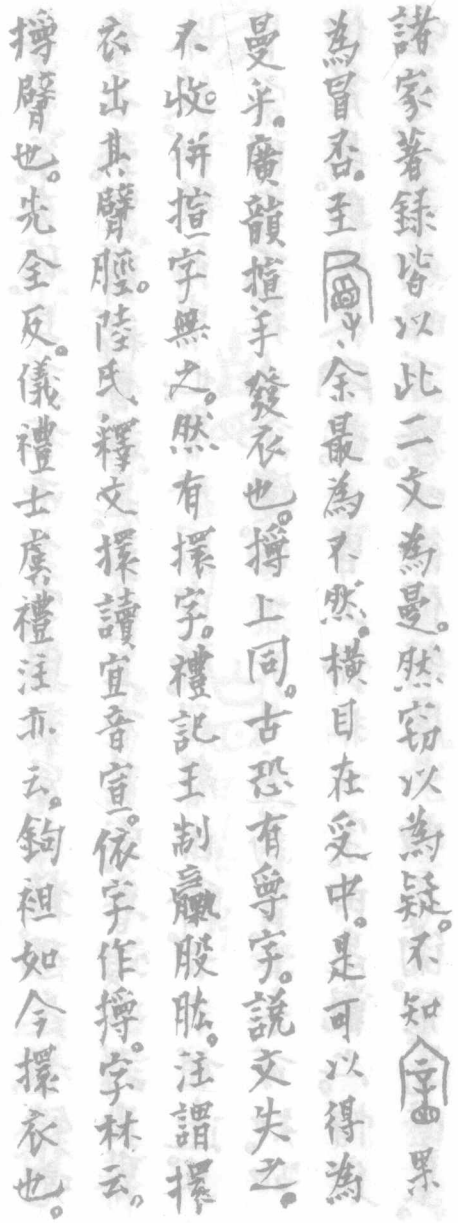 諸家著録皆以此二文為曼。然窃以為疑。不知果
為冒否。至余最為不然。横目在受中。是可以得為
曼乎。廣韻揎手發衣也。㨙上同。古恐有㝵字。説文失之。
不收。併揎字無之。然有擐字。禮記王制臝股肱。注謂擐
衣出其臂脛。陸氏釋文擐讀宜音宣。依字作㨙。字林云。
㨙臂也。先全反。儀禮士虞禮注亦云。鉤袒如今擐衣也。